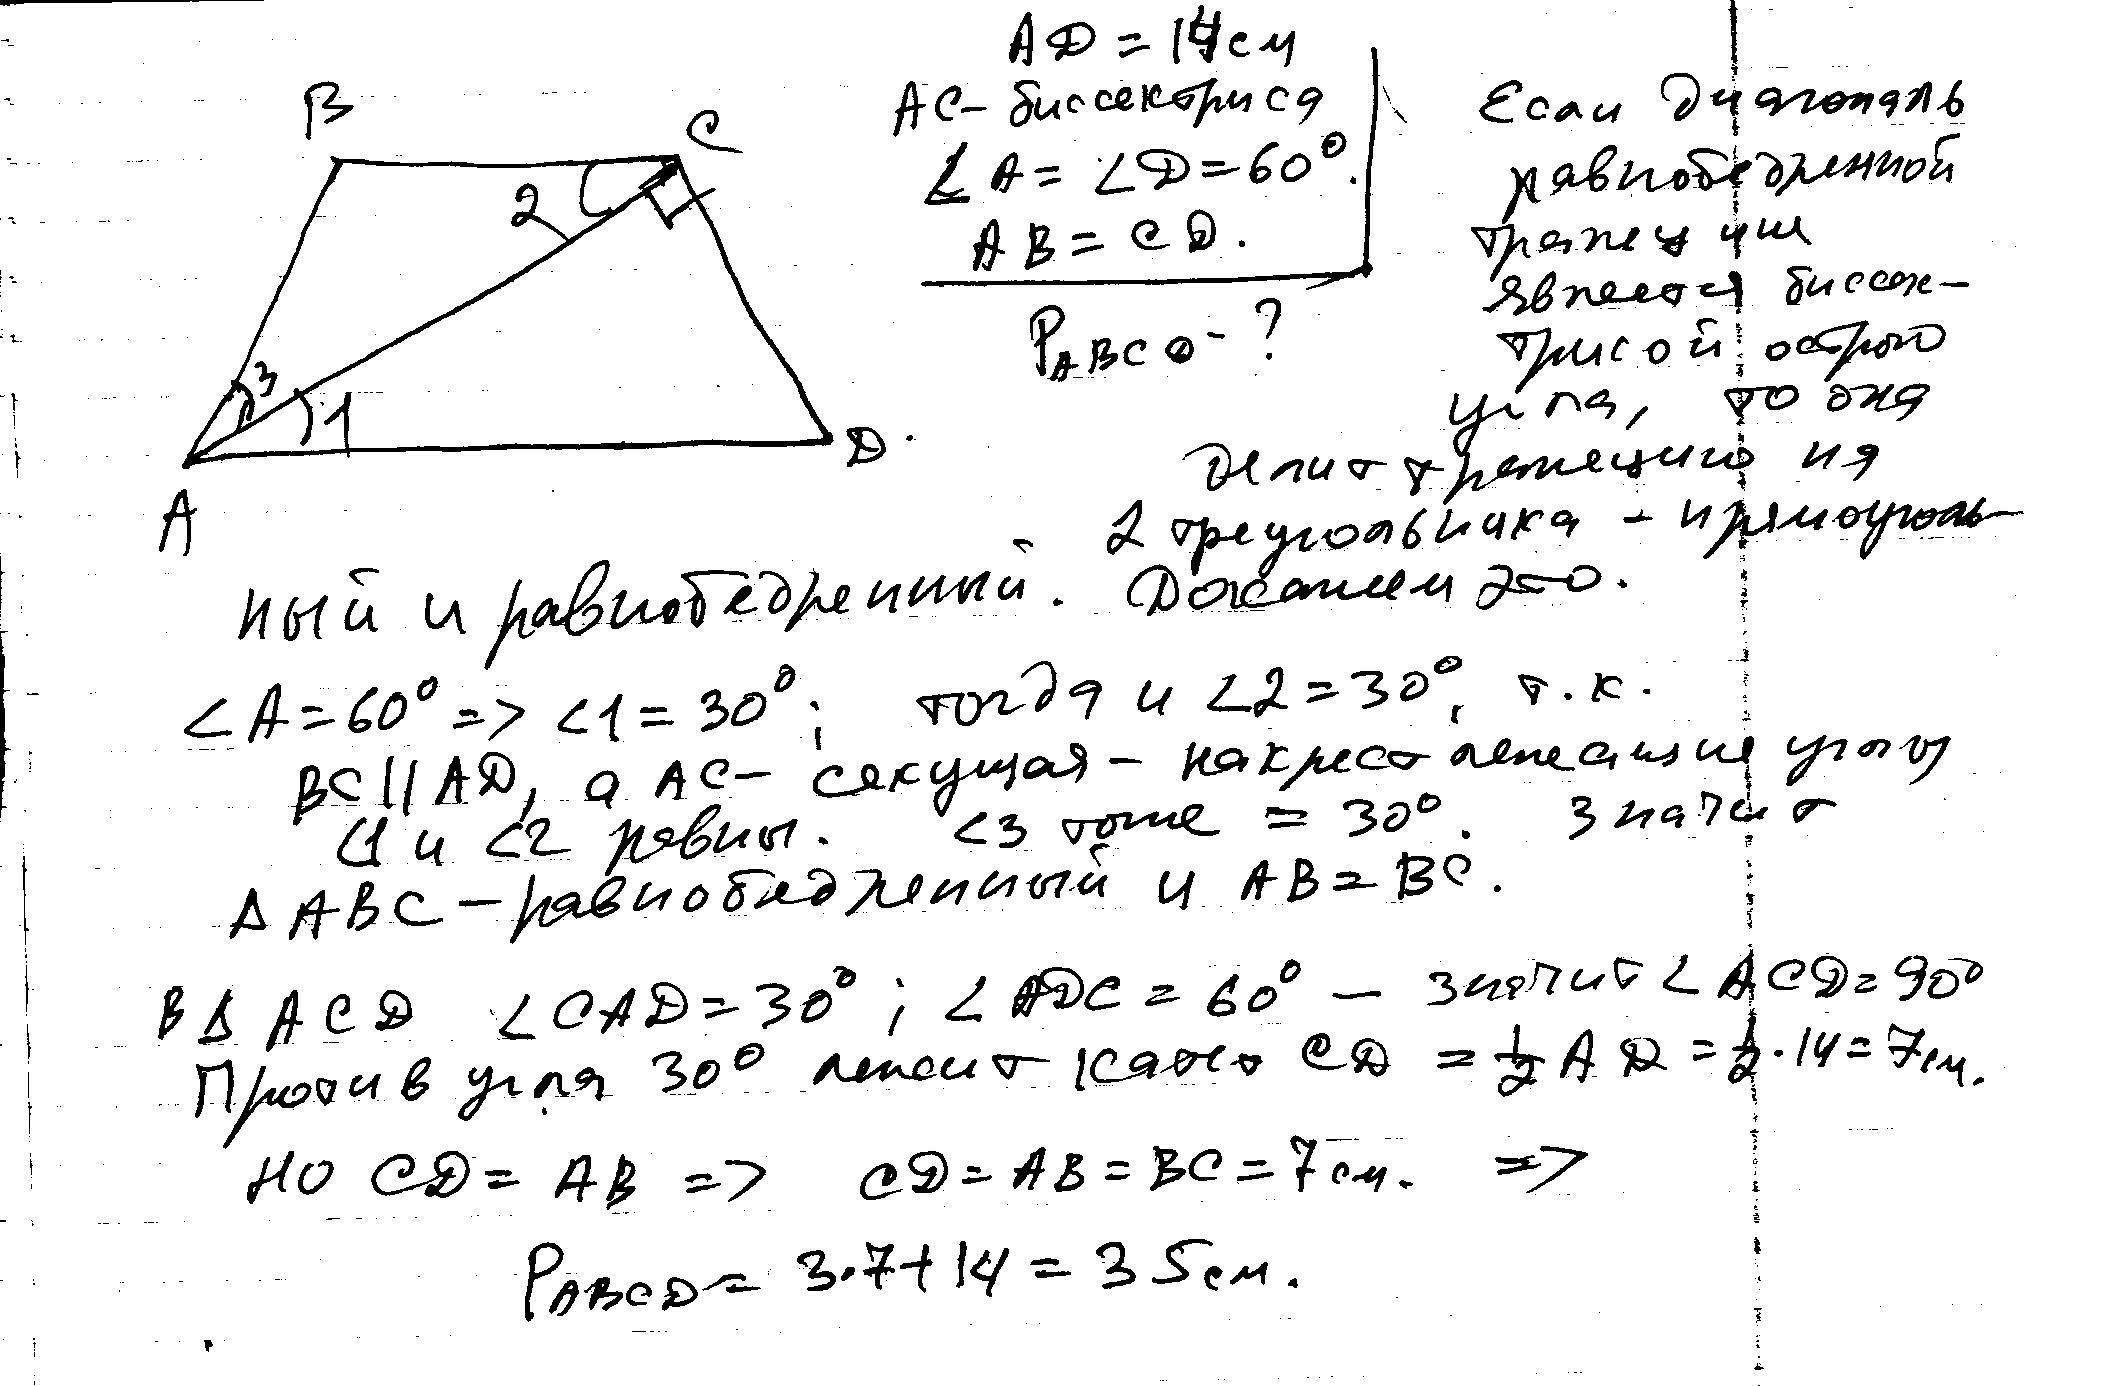 B
C
2
3
1
A
D
AD = 14 см
AC - биссектриса
∠A = ∠D = 60°.
AB = CD.
P ABCD - ?
Если диагональ
равнобедренной
трапеции
является биссек-
трисой острого
угла, то она
делит трапецию на
2 треугольника - прямоуголь-
ный и равнобедренный. Докажем это.
∠A = 60° => ∠1 = 30°; тогда и ∠2 = 30°, т.к.
BC || AD, а AC - секущая - накрест лежащие углы
∠1 и ∠2 равны. ∠3 тоже = 30°. Значит
Δ ABC - равнобедренный и AB = BC.
В Δ ACD ∠CAD = 30°; ∠ADC = 60° - значит ∠ACD = 90°
Против угла 30° лежит катет CD = 1/2 AD = 1/2 · 14 = 7 см.
НО CD = AB => CD = AB = BC = 7 см. =>
P ABCD = 3·7 + 14 = 35 см.